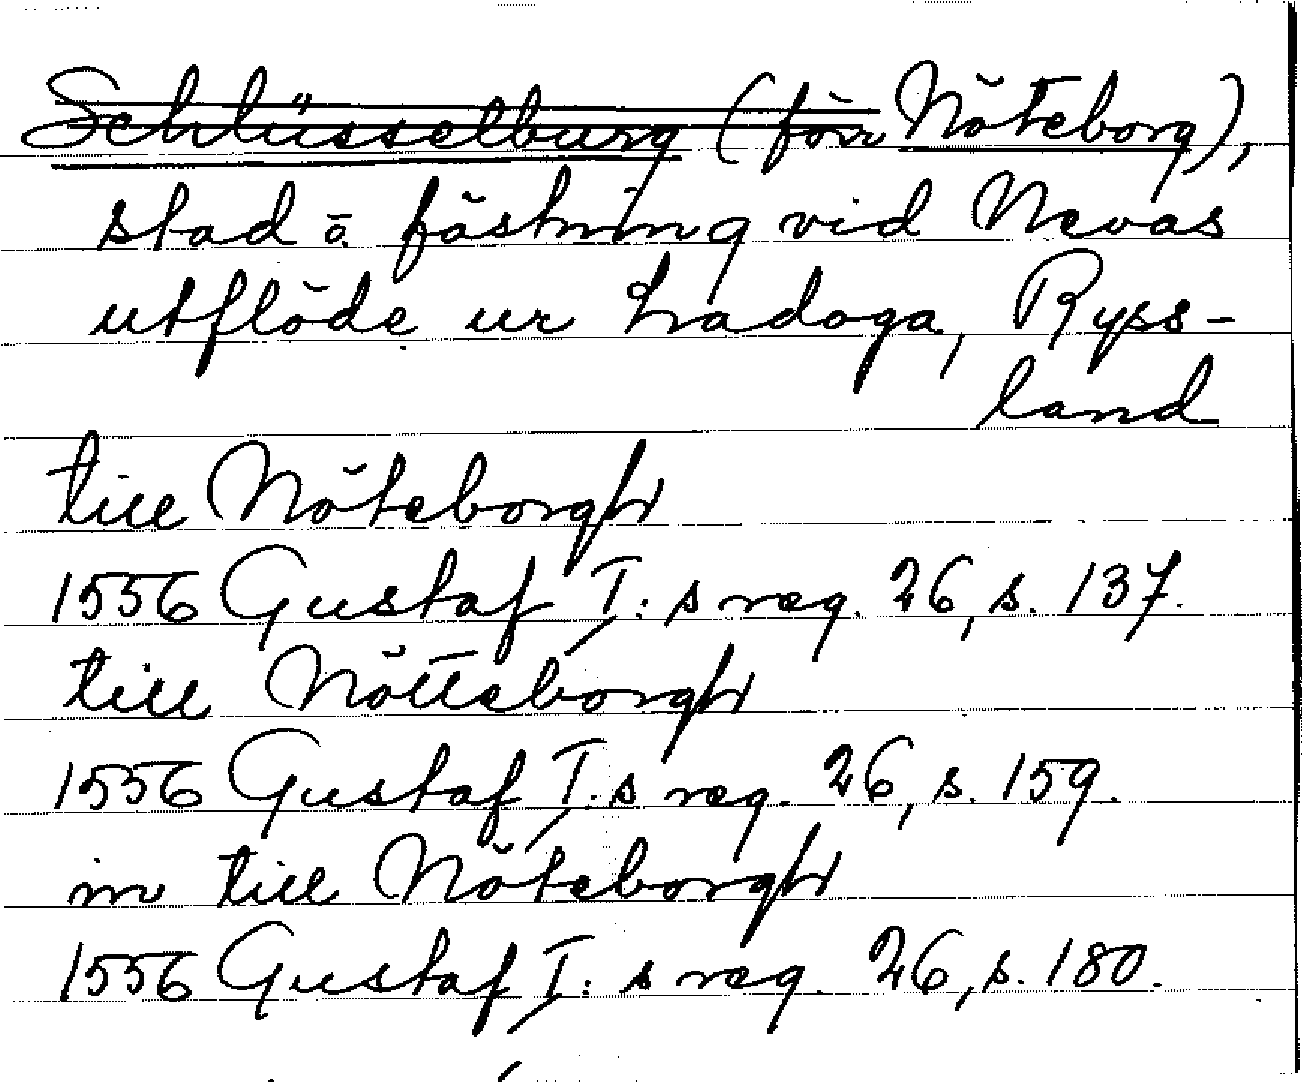 Schlüsselburg (förr Nöteborg),
stad o. fästning vid Nevas
utflöde ur Ladoga, Ryss-
land
till Nöteborgh
1556 Gustaf I:s reg. 26, s. 137.
till Nötteborgh
1556 Gustaf I:s reg. 26, s. 159.
in till Nöteborgh
1556 Gustaf I:s reg. 26, s. 180.